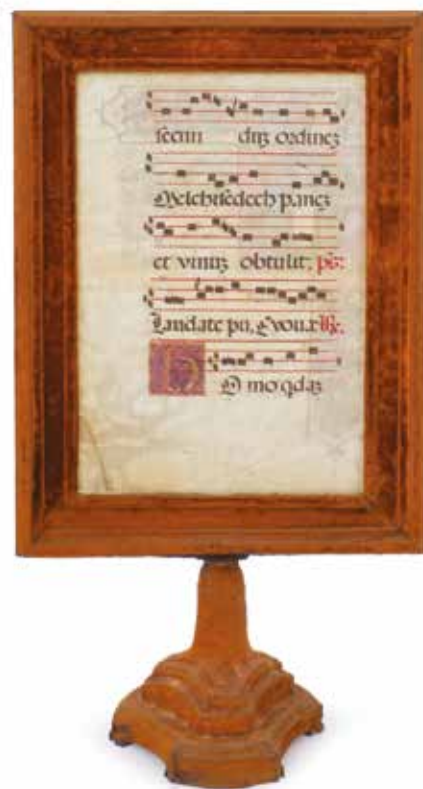 secun duz ordinez
Melchisedech panez
et vinuz obtulit; ps:
Laudate pu, Evouae. Re.
HO mo qdaz